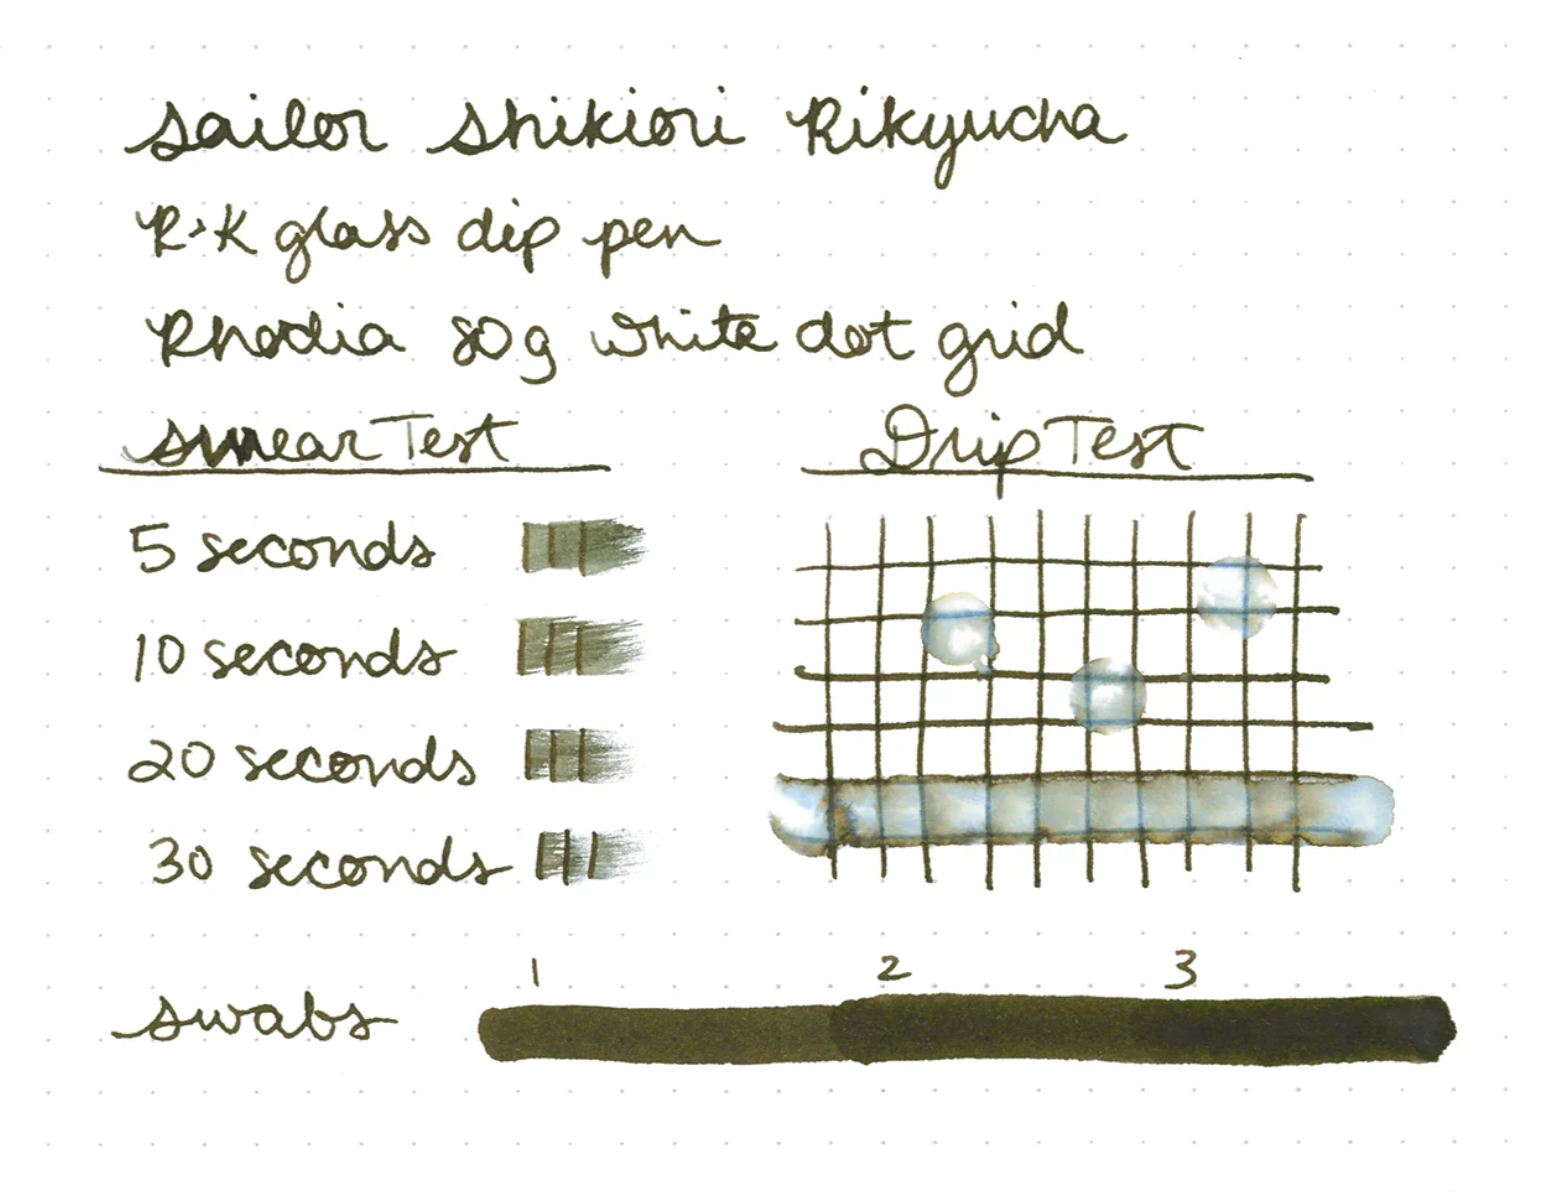 Sailor Shikiori Rikyucha
R+K glass dip pen
Rhodia 80g white dot grid
Smear Test
Drip Test
5 seconds
10 seconds
20 seconds
30 seconds
1 2 3
swabs